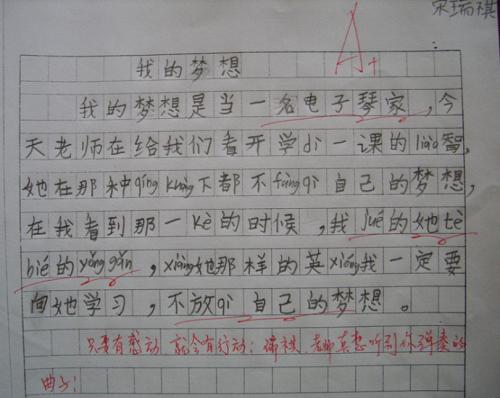 宋瑞祺
A+
我的梦想
我的梦想是当一名电子琴家,今
天老师在给我们看开学dì一课的liào智,
她在那种qíng kuàng下都不fàng qì自己的梦想,
在我看到那一kè的时候,我jué的她tè
bié的yǒng gǎn,xiàng她那样的英xióng我一定要
向她学习,不放qì自己的梦想。
只要有感动,就会有行动;瑞祺,老师真想听到你弹奏的
曲子!